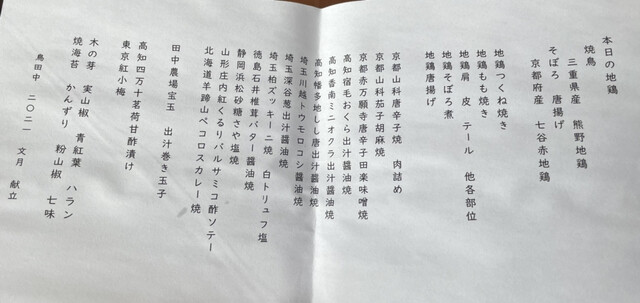 本日の地鶏
焼鳥 三重県産 熊野地鶏
そぼろ 唐揚げ
京都府産 七谷赤地鶏
地鶏つくね焼き
地鶏もも焼き
地鶏肩 皮 テール 他各部位
地鶏そぼろ煮
地鶏唐揚げ
京都山科唐辛子焼 肉詰め
京都山科茄子胡麻焼
京都赤万願寺唐辛子田楽味噌焼
高知香南ミニオクラ出汁醤油焼
高知宿毛おくら出汁醤油焼
高知幡多地しし唐出汁醤油焼
埼玉川越トウモロコシ醤油焼
埼玉深谷葱出汁醤油焼
埼玉柏ズッキーニ焼 白トリュフ塩
徳島石井椎茸バター醤油焼
静岡浜松砂糖さや塩焼
山形庄内紅くるりバルサミコ酢ソテー
北海道羊蹄山ペコロスカレー焼
田中農場宝玉 出汁巻き玉子
高知四万十茗荷甘酢漬け
東京紅小梅
木の芽 実山椒 青紅葉 ハラン
焼海苔 かんずり 粉山椒 七味
鳥田中 二〇二一 文月 献立